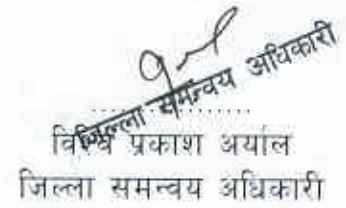 जिल्ला समन्वय अधिकारी
....................
विश्व प्रकाश अर्याल
जिल्ला समन्वय अधिकारी